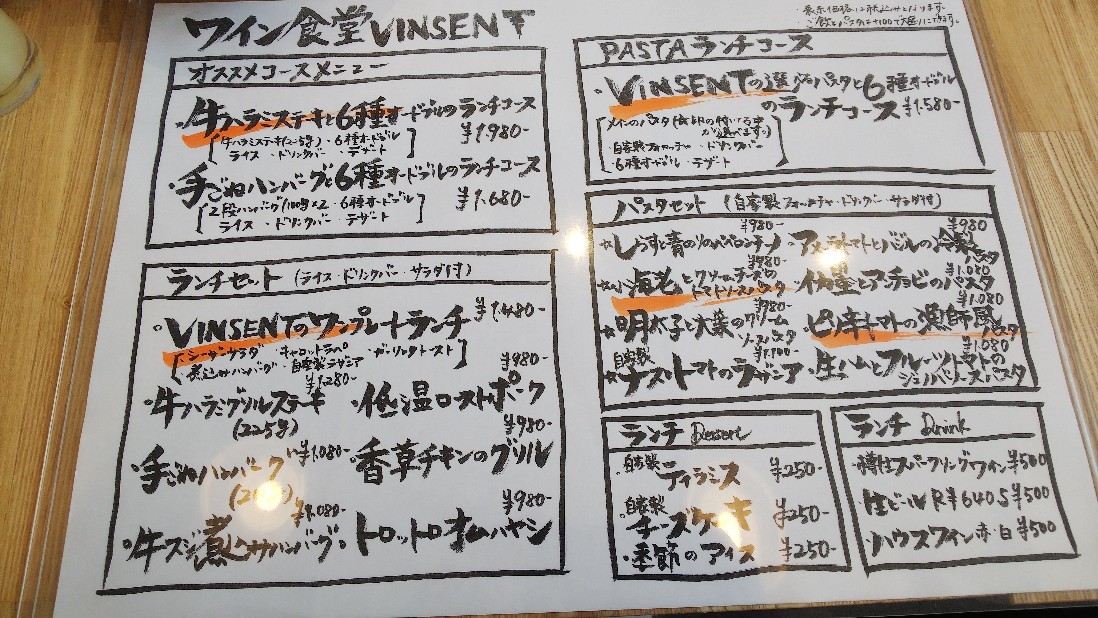 ワイン食堂 VINSENT
表示価格は税込みとなります。
オススメコースメニュー
・牛ハラミステキと6種オードブルのランチコース
¥1,980-
[牛ハラミステキ(225g)・6種オードブル
ライス・ドリンクバー・デザート]
・手ごねハンバーグと6種オードブルのランチコース
¥1,680-
[2段ハンバーグ/100g×2・6種オードブル
ライス・ドリンクバー・デザート]
ランチセット (ライス・ドリンクバー・サラダ付)
・VINSENTのワンプレートランチ ¥1,480-
[シーザーサラダ・キャロットラペ・ガーリックトースト
煮込みハンバーグ・自家製ラザニア]
¥1,280-
・牛ハラミグリルステーキ
(225g)
¥980-
・低温ローストポーク
¥1,080-
・手ごねハンバーグ
¥980-
・香草チキンのグリル
¥1,080-
・牛スジ煮込みハンバーグ
¥980-
・トロットロオムハヤシ
PASTAランチコース
・VINSENTの選べるパスタと6種オードブル
のランチコース ¥1,580-
・自家製フォカッチャ・ドリンクバー
・6種オードブル・デザート
パスタセット (自家製フォカッチャ・ドリンクバー・サラダ付)
¥980-
☆しらすと青のりのペペロンチーノ
¥980
・アメーラトマトとバジルの冷製パスタ
¥980-
海老とクリームチーズの
トマトソースパスタ
¥1,080
とアンチョビのパスタ
¥980-
☆明太子と大葉のクリーム
ソースパスタ
¥1,080
・ピリ辛トマトの漁師風パスタ
¥1,100-
自家製
☆ナスとトマトのラザニア
¥1,080
・生ハムとフルーツトマトの
ジェノベーゼパスタ
ランチ Dessert
自家製
・ティラミス ¥250-
自家製
・チーズケーキ ¥250-
・季節のアイス ¥250-
ランチ Drink
・樽生スパークリングワイン ¥500
・生ビール ¥500
・ハウスワイン 赤・白 ¥500